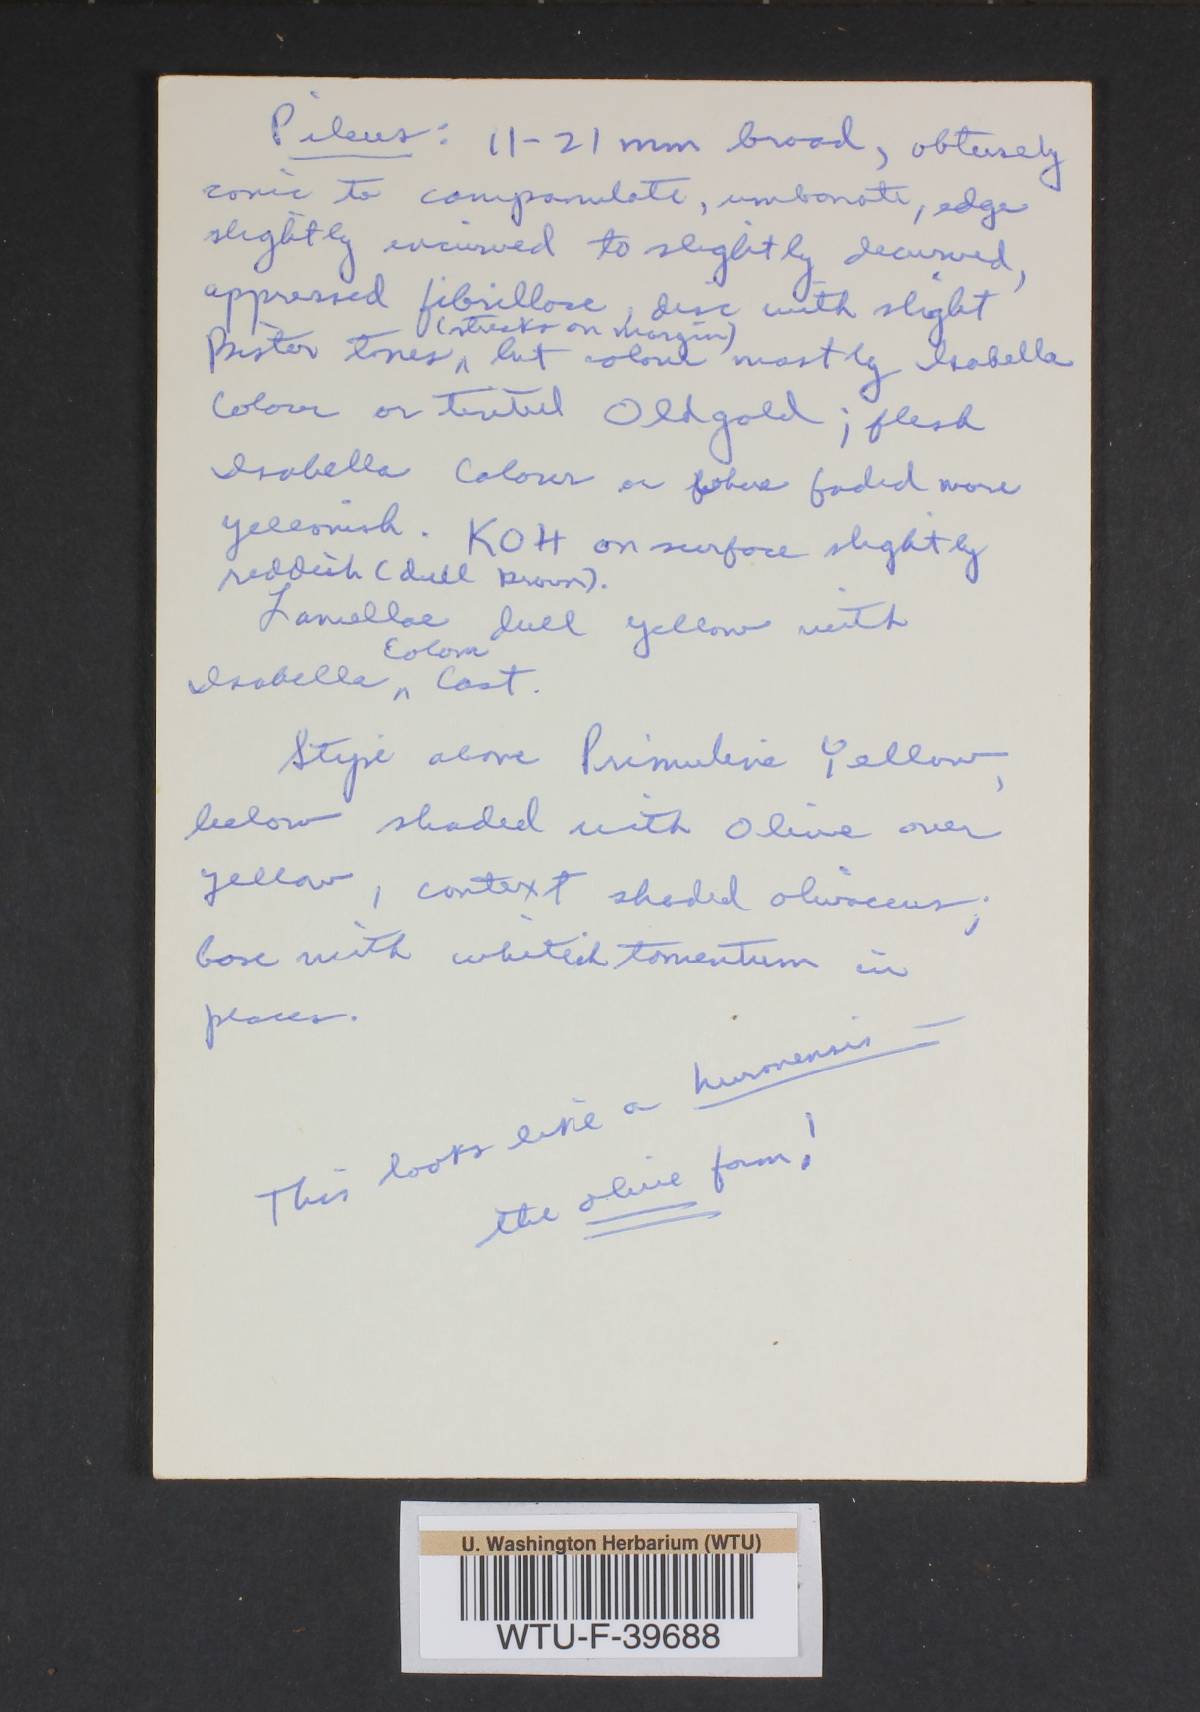 Pileus: 11-21 mm broad, obtusely
conic to campanulate, umbonate, edge
slightly incurved to slightly decurved,
appressed fibrillose, disc with slight
(streaks on margin)
Bister tones, ^ but colour mostly Isabella
Colour or tinted Old gold; flesh
Isabella Colour or faded more
yellowish. KOH on surface slightly
reddish (dull brown).
Lamellae dull yellow with
Colour
Isabella ^ Cast.
Stipe above Primuline Yellow,
below shaded with Olive over
yellow, context shaded olivaceus;
base with whitish tomentum in
places.
This looks like a huronensis —
the olive form!
U. Washington Herbarium (WTU)
WTU-F-39688